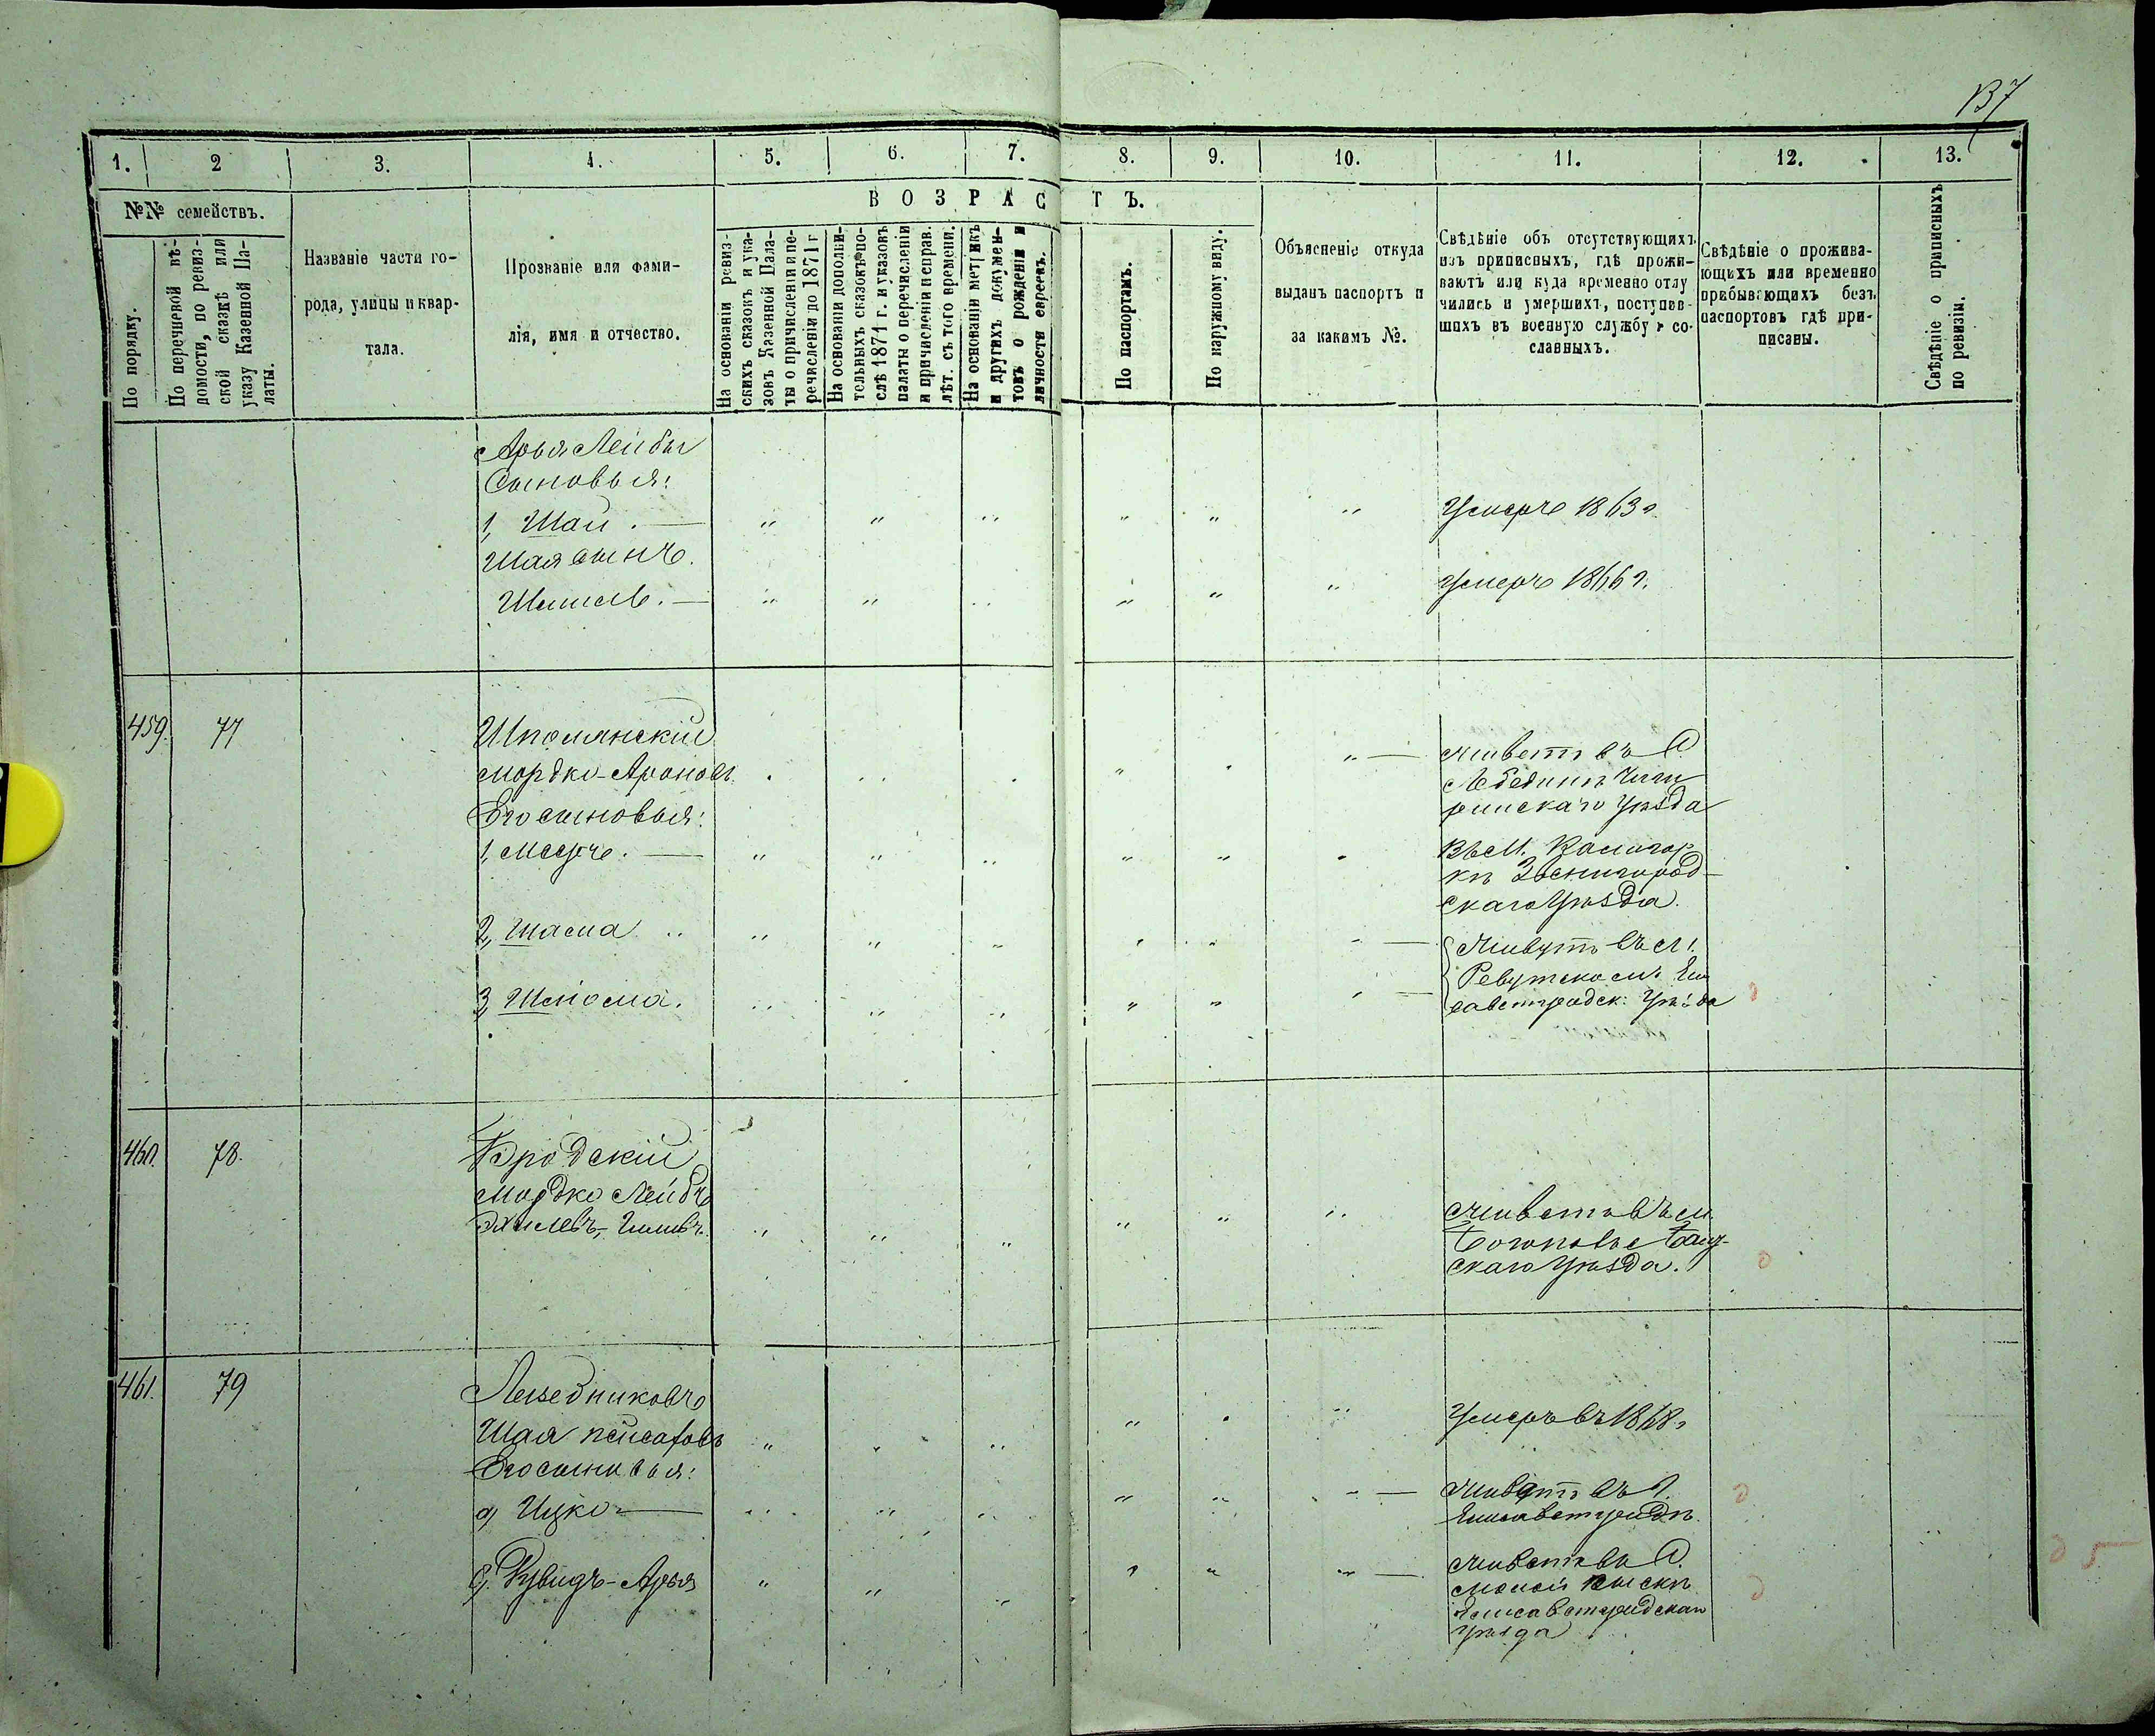 137
1. 2 3. 4. 5. 6. 7. 8. 9. 10. 11. 12. 13.
№№ семействъ.
По порядку.
По перечневой вѣ-
домости, по ревиз-
ской сказкѣ или
указу Казенной Па-
латы.
Названіе части го-
рода, улицы и квар-
тала.
Прозваніе или фами-
лія, имя и отчество.
ВОЗРАСТЪ.
На основаніи ревиз-
скихъ сказокъ и ука-
зовъ Казенной Пала-
ты о причисленіи и пе-
речисленіи до 1871 г
На основаніи дополни-
тельныхъ сказокъ по-
слѣ 1871 г. и указовъ
палаты о перечисленіи
и причисленіи и справ.
лѣт. съ того времени.
На основаніи метрикъ
и другихъ докумен-
товъ о рожденіи и
личности евреевъ.
По паспортамъ.
По наружному виду.
Объясненіе откуда
выданъ паспортъ и
за какимъ №.
Свѣдѣніе объ отсутствующихъ
изъ приписныхъ, гдѣ прожи-
ваютъ или куда временно отлу
чились и умершихъ, поступив-
шихъ въ военную службу и со-
сланныхъ.
Свѣдѣніе о прожива-
ющихъ или временно
пребывающихъ безъ
паспортовъ гдѣ при-
писаны.
Свѣдѣніе о приписныхъ
по ревизіи.
Арья Лейбы
Сыновья:
1, Шая. — Умеръ 1863 г.
Шая сынъ.
Умеръ 1866 г.
459. 77 Шполянскій
Мордко-Ароновъ Живетъ въ С.
Лебединѣ Чиги
Его сыновья: ринскаго уѣзда
1, Мееръ. — Въ М.
Звенигород-
скаго Уѣзда.
2, Шама Живутъ въ М.
Ели
3, Шлиома. саветградск. Уѣзда
460. 78. Бродскій
Мордко Лейбъ
Живетъ въ м.
скаго Уѣзда.
461. 79
Шая Умеръ въ 1868 г
Его сыновья:
а) Ицко — Живетъ въ Г.
Елисаветградѣ.
Арья Живетъ въ С.
Малой Выскѣ
Елисаветградскаго
уѣзда